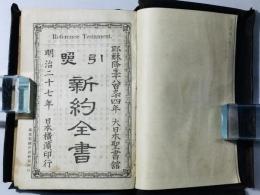 Reference Testament.
耶穌降生千八百九十四年 大日本聖書舘
引照
新約全書
明治二十七年 日本横濱印行